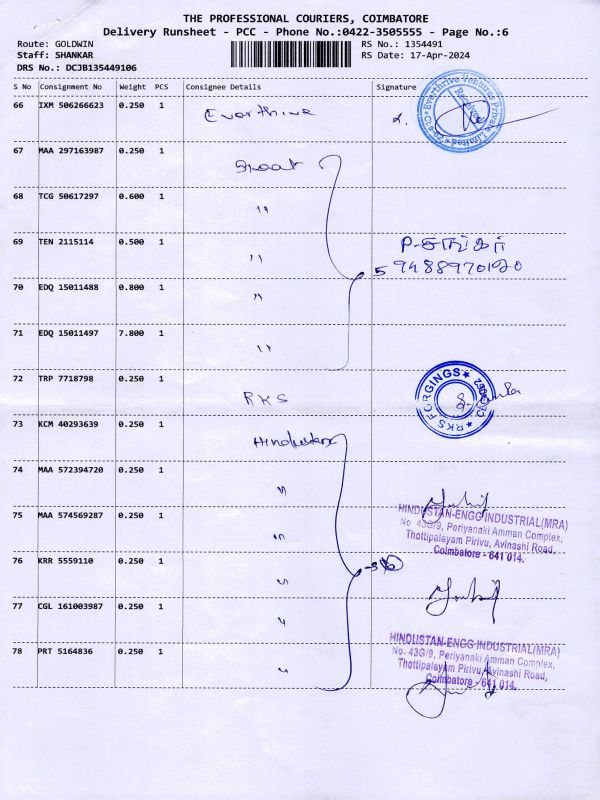 THE PROFESSIONAL COURIERS, COIMBATORE
Delivery Runsheet - PCC - Phone No.:0422-3505555 - Page No.:6
Route: GOLDWIN RS No.: 1354491
Staff: SHANKAR RS Date: 17-Apr-2024
DRS No.: DCJB135449106
S No Consignment No Weight PCS Consignee Details Signature
66 IXM 506266623 0.250 1 Everthrive
Everthrive Ventures Private Limited
67 MAA 297163987 0.250 1
68 TCG 50617297 0.600 1 "
69 TEN 2115114 0.500 1 "
P-சங்கர்
5 9488970120
70 EDQ 15011488 0.800 1 "
71 EDQ 15011497 7.800 1 "
72 TRP 7718798 0.250 1 RKS
RKS FORGINGS
73 KCM 40293639 0.250 1 Hindustan
74 MAA 572394720 0.250 1 "
HINDUSTAN-ENGG INDUSTRIAL(MRA)
No. 43G/9, Periyanaki Amman Complex,
75 MAA 574569287 0.250 1 "
Thottipalayam Pirivu, Avinashi Road,
Coimbatore - 641 014.
76 KRR 5559110 0.250 1 "
77 CGL 161003987 0.250 1 "
78 PRT 5164836 0.250 1 "
HINDUSTAN-ENGG INDUSTRIAL(MRA)
No. 43G/9, Periyanaki Amman Complex,
Thottipalayam Pirivu, Avinashi Road,
Coimbatore - 641 014.